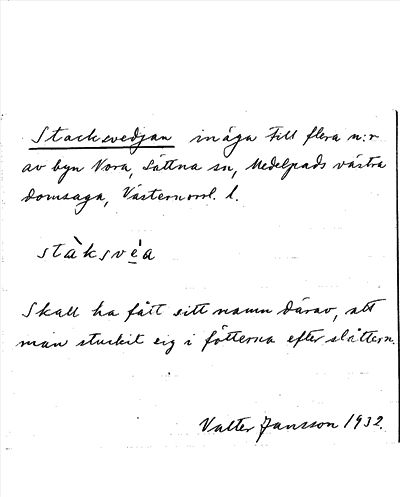 Stacksvedjan inäga till flera n:r
av byn Vora, Sättna sn, Medelpads västra
domsaga, Västernorrl. l.
stàksvéa
Skall ha fått sitt namn därav, att
man stuckit sig i fötterna efter slåttern.
Valter Jansson 1932.